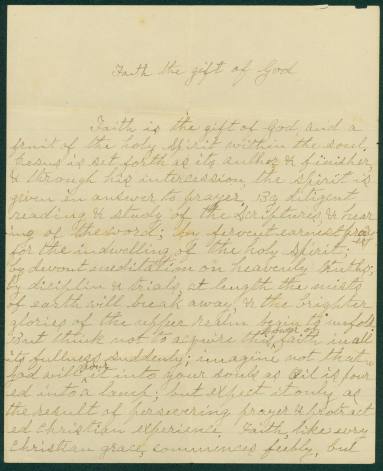 Faith the gift of God
Faith is the gift of God, and a
fruit of the holy spirit within the soul.
Jesus is set forth as its author & finisher,
& through his intercession, the spirit is
given in answer to prayer. By diligent
reading & study of the Scriptures, & hear
ing of the word; by fervent earnest pray
er
for the indwelling of the holy spirit;
by devout meditation on heavenly truths,
by disciplin & trials, at length the mists
of earth will break away, & the brighter
glories of the upper realm begin to unfold
But think not to acquire this faith in all
its fullness suddenly; imagine not that
pour
God will it into your souls as oil is pour
ed into a lamp; but expect it only as
the result of persevering prayer & protract
ed christian experience. Faith, like every
christian grace, commences feebly, but